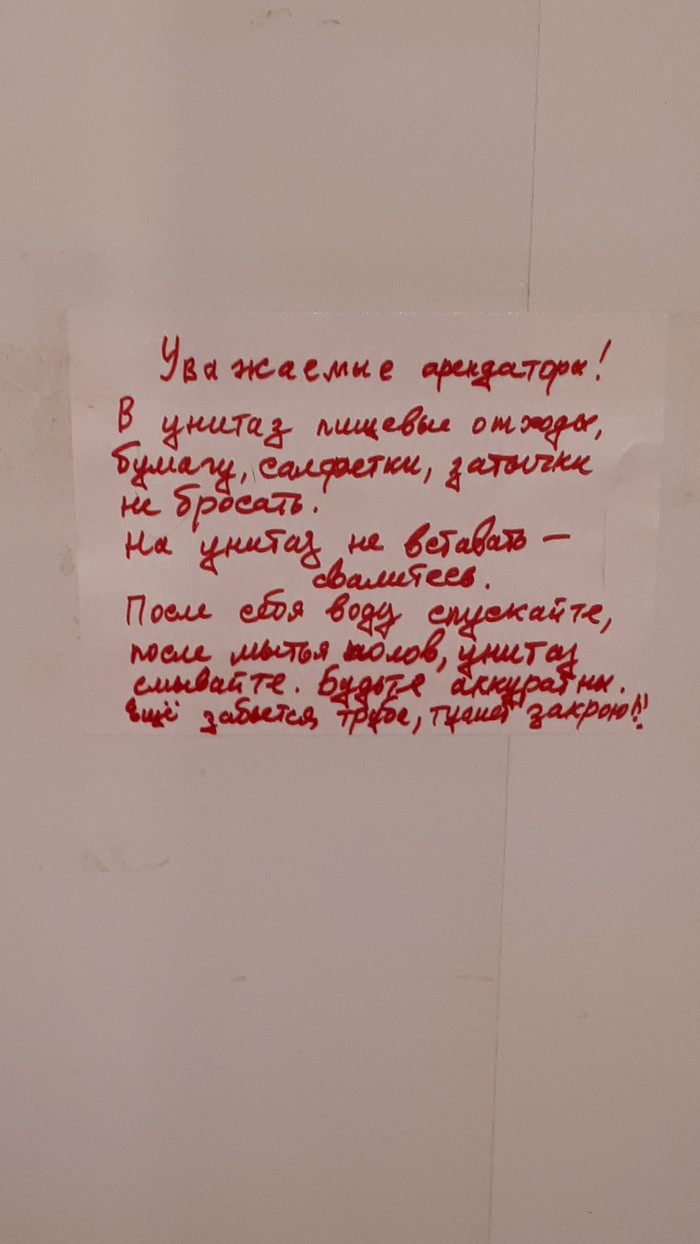 Уважаемые арендаторы!
В унитаз пищевые отходы,
бумагу, салфетки, затычки
не бросать.
На унитаз не вставать –
свалитесь.
После себя воду спускайте,
после мытья полов, унитаз
смывайте. Будьте аккуратны.
Ещё забьется труба, туалет закрою!!